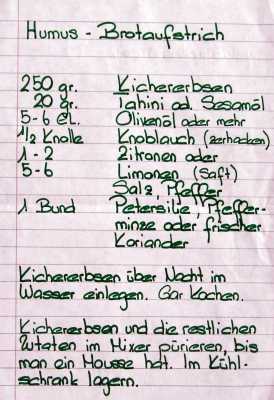 Humus - Brotaufstrich
250 gr. Kichererbsen
20 gr. Tahini od. Sesamöl
5-6 EL. Olivenöl oder mehr
1/2 Knolle Knoblauch (zerhacken)
1 - 2 Zitronen oder
5-6 Limonen (Saft)
Salz, Pfeffer
1 Bund Petersilie, Pfeffer-
minze oder frischer
Koriander
Kichererbsen über Nacht im
Wasser einlegen. Gar kochen.
Kichererbsen und die restlichen
Zutaten im Mixer pürieren, bis
man ein Mousse hat. Im Kühl-
schrank lagern.